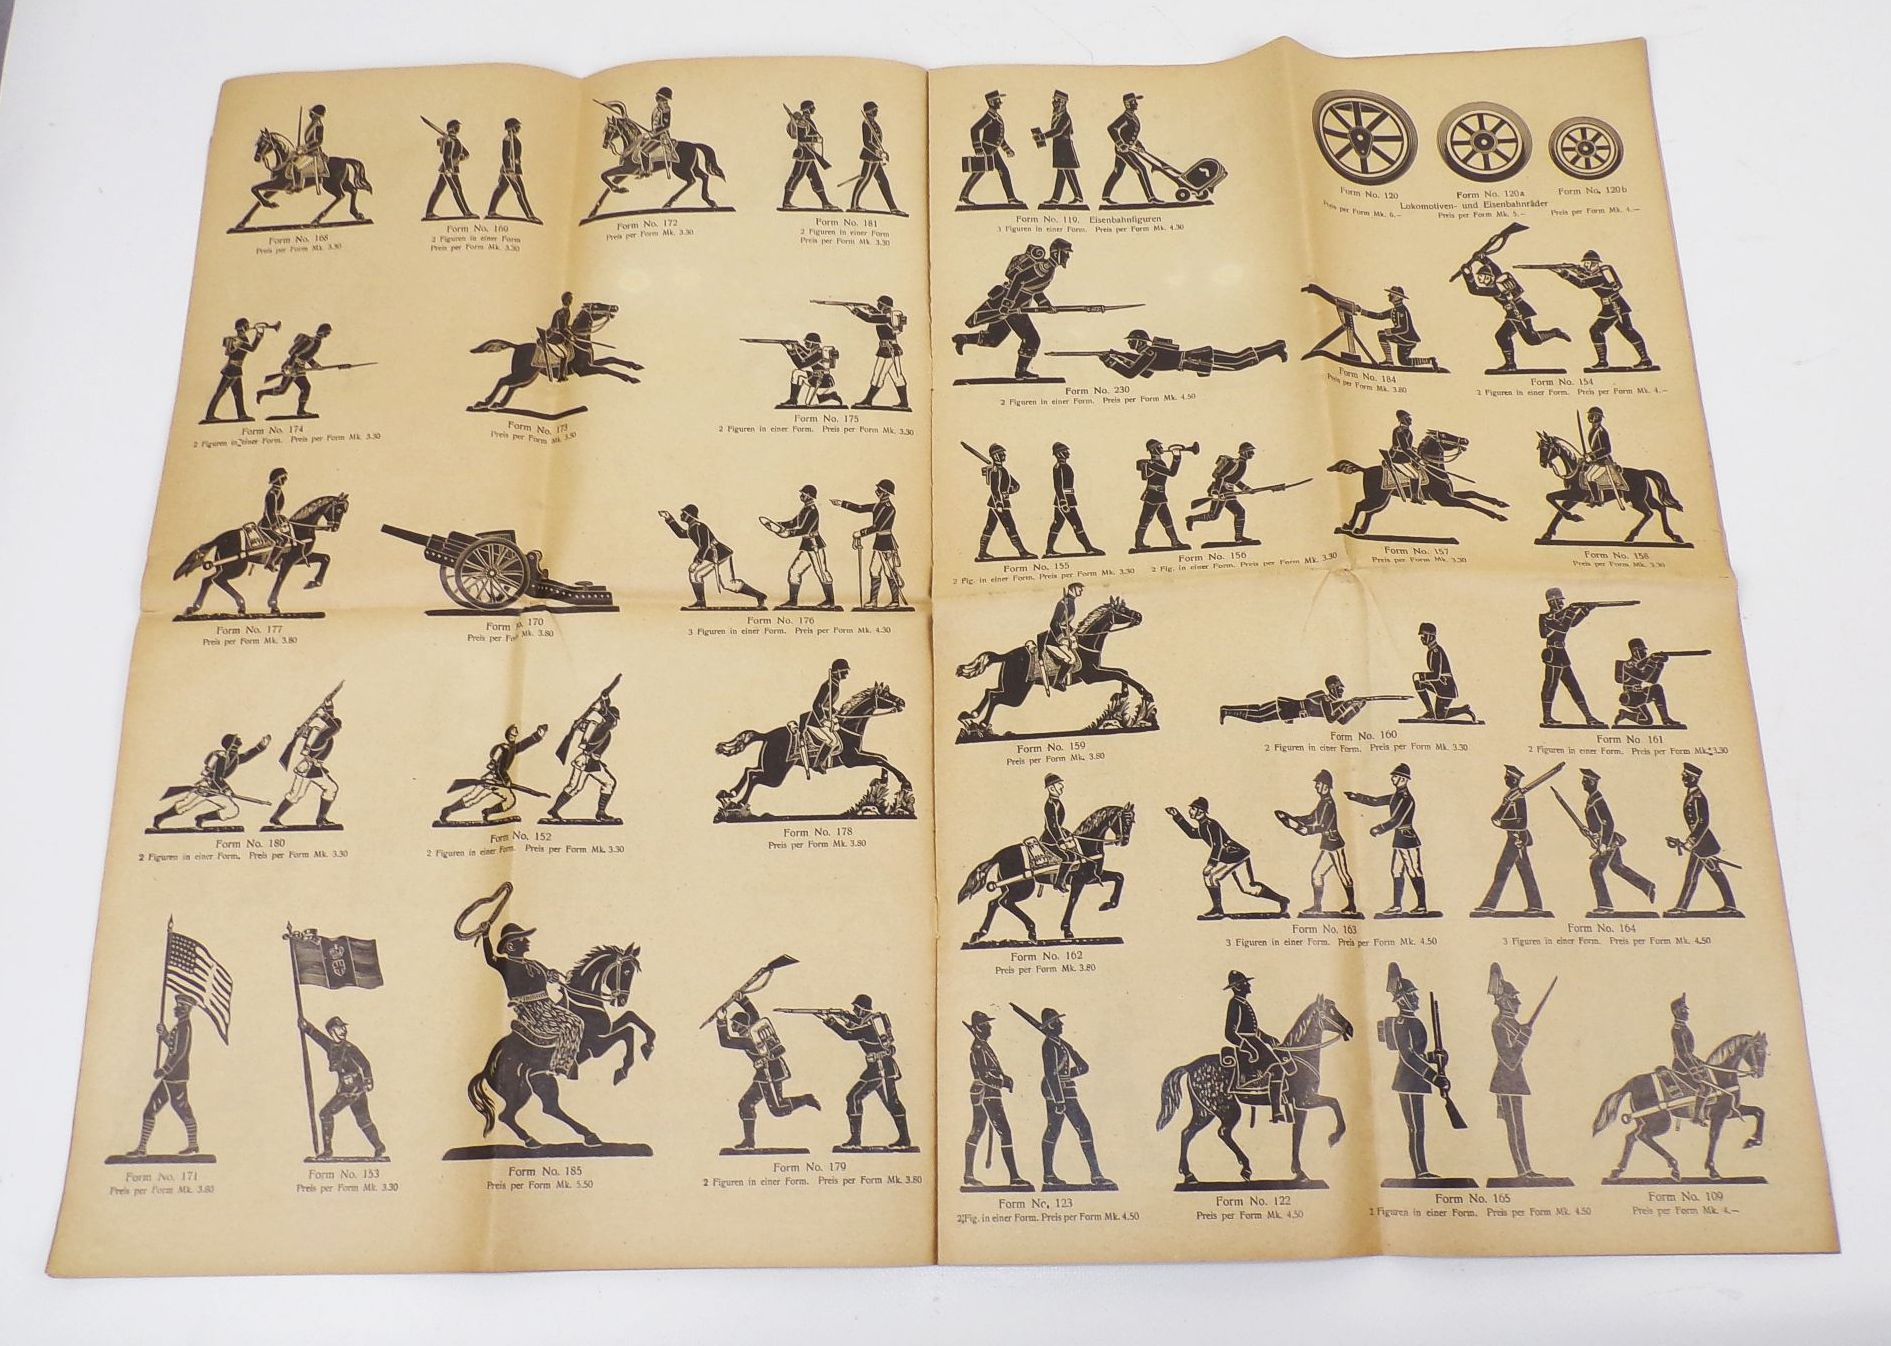 Form No. 168
Preis per Form Mk. 3.30
Form No. 169
2 Figuren in einer Form
Preis per Form Mk. 3.30
Form No. 172
Preis per Form Mk. 3.30
Form No. 181
2 Figuren in einer Form
Preis per Form Mk. 3.30
Form No. 174
2 Figuren in einer Form. Preis per Form Mk. 3.30
Form No. 173
Preis per Form Mk. 3.30
Form No. 175
2 Figuren in einer Form. Preis per Form Mk. 3.30
Form No. 177
Preis per Form Mk. 3.80
Form 170
Preis per Mk. 3.80
Form No. 176
3 Figuren in einer Form. Preis per Form Mk. 4.30
Form No. 180
2 Figuren in einer Form. Preis per Form Mk. 3.30
Form No. 152
2 Figuren in einer Form. Preis per Form Mk. 3.30
Form No. 178
Preis per Form Mk. 3.80
Form No. 171
Preis per Form Mk. 3.80
Form No. 153
Preis per Form Mk. 3.30
Form No. 185
Preis per Form Mk. 5.50
Form No. 179
2 Figuren in einer Form. Preis per Form Mk. 3.80
Form No. 119. Eisenbahnfiguren
3 Figuren in einer Form. Preis per Form Mk. 4.30
Form No. 120
Preis per Form Mk. 6.—
Form No. 120a
Preis per Form Mk. 5.—
Form No. 120b
Preis per Form Mk. 4.—
Lokomotiven- und Eisenbahnräder
Form No. 230
2 Figuren in einer Form. Preis per Form Mk. 4.50
Form No. 184
Preis per Form Mk. 3.80
Form No. 154
2 Figuren in einer Form. Preis per Form Mk. 4.—
Form No. 155
2 Fig. in einer Form. Preis per Form Mk. 3.30
Form No. 156
2 Fig. in einer Form. Preis per Form Mk. 3.30
Form No. 157
Preis per Form Mk. 3.30
Form No. 158
Preis per Form Mk. 3.30
Form No. 159
Preis per Form Mk. 3.80
Form No. 160
2 Figuren in einer Form. Preis per Form Mk. 3.30
Form No. 161
2 Figuren in einer Form. Preis per Form Mk. 3.30
Form No. 162
Preis per Form Mk. 3.80
Form No. 163
3 Figuren in einer Form. Preis per Form Mk. 4.50
Form No. 164
3 Figuren in einer Form. Preis per Form Mk. 4.50
Form No. 123
2 Fig. in einer Form. Preis per Form Mk. 4.50
Form No. 122
Preis per Form Mk. 4.50
Form No. 165
2 Figuren in einer Form. Preis per Form Mk. 4.50
Form No. 109
Preis per Form Mk. 4.—